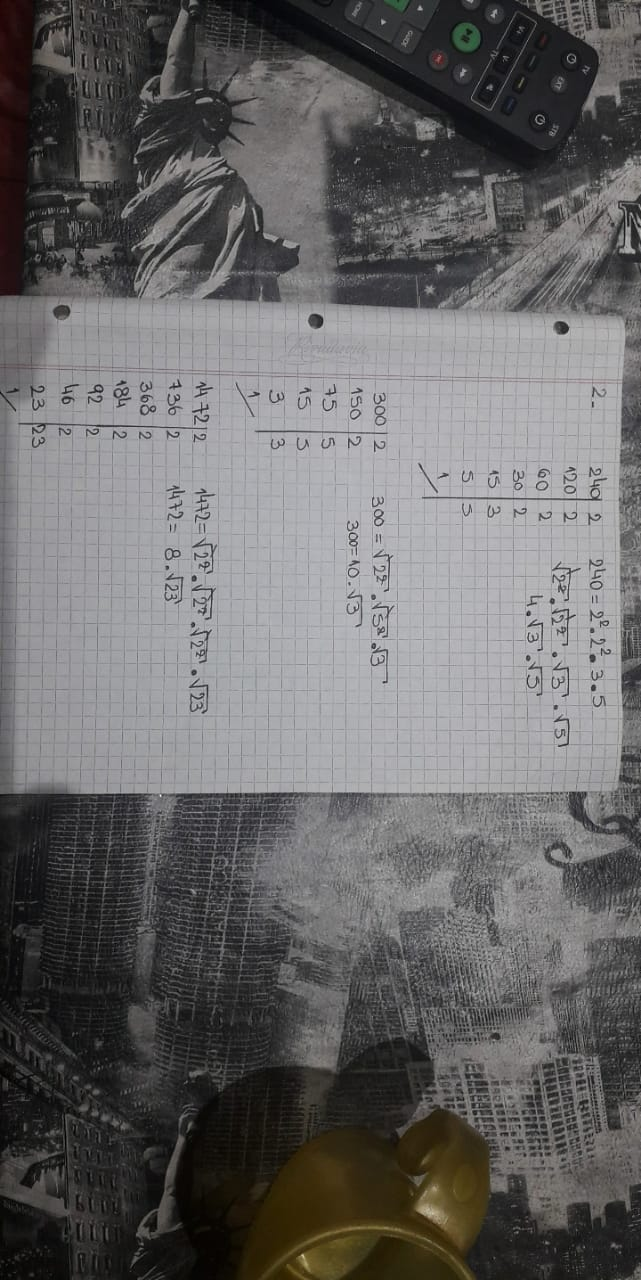 2.
240 | 2
120 | 2
60 | 2
30 | 2
15 | 3
5 | 5
1
240 = 2². 2². 3 . 5
√2². √2². √3 . √5
4 . √3 . √5
300 | 2
150 | 2
75 | 5
15 | 5
3 | 3
1
300 = √2². √5². √3
300 = 10 . √3
1472 | 2
736 | 2
368 | 2
184 | 2
92 | 2
46 | 2
23 | 23
1
1472 = √2². √2². √2². √23
1472 = 8 . √23
HOME
GUIDE
TV
EXT
STB